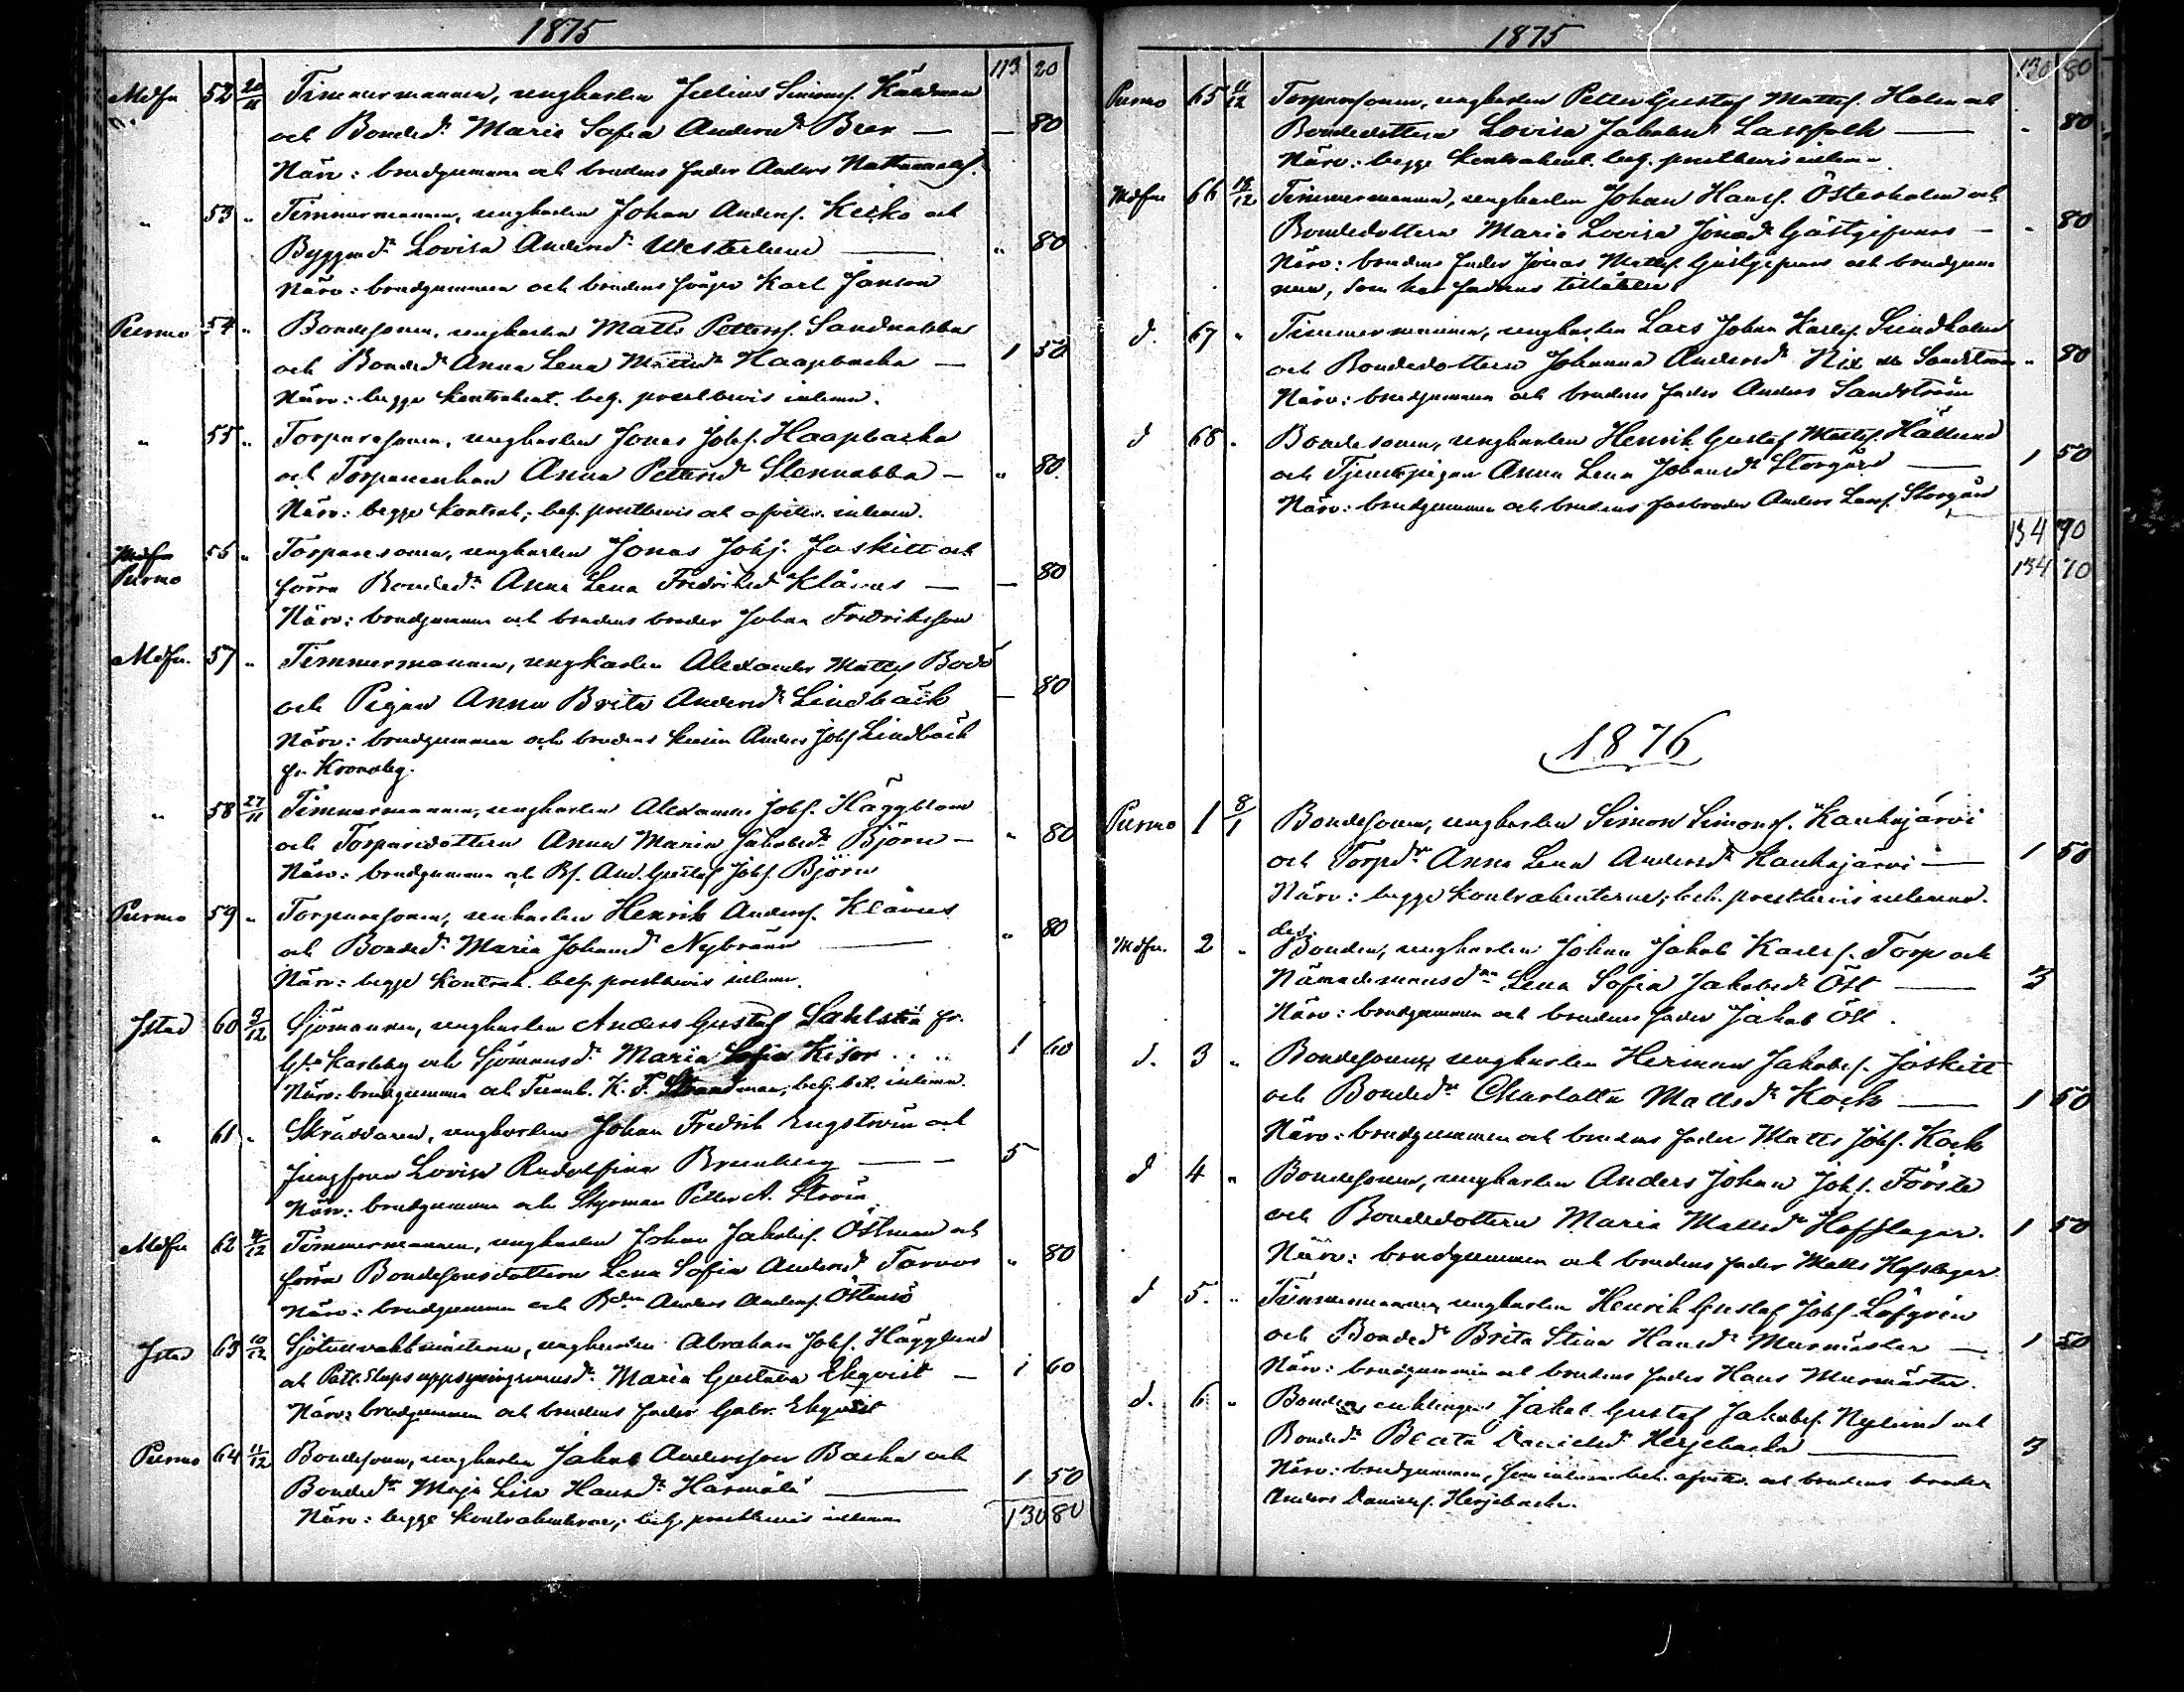 1875
113 20
Mdfn 52 20/11 Timmermannen, ungkarlen Julius Simonsf.
och Bonded. Maria Sofia Andersdr — — 80
Närv: brudgummen och brudens fader Anders
" 53 " Timmermannen, ungkarlen Johan Andersf. Keska och
Byggmd. Lovisa Andersdr Westerlund — " 80
Närv: brudgummen och brudens svåger Karl Janson
Purmo 54 " Bondesonen, ungkarlen Matts Pettersf. Sandnabba
och Bonded. Anna Lena Mattsdr Haapbacka — 1 50
Närv: begge kontrahent. beh. prestbevis inlemn.
" 55 " Torparesonen, ungkarlen Jonas Johsf. Haapbacka
och Torpareenkan Anna Pettersdr Stennabba — " 80
Närv: begge kontrah; beh. prestbevis och inlemn.
Mdfn
Purmo 56 " Torparesonen, ungkarlen Jonas Johsf. Joskitt och
förra Bonded. Anna Lena Fredriksdr Klåvus — — 80
Närv: brudgummen och brudens broder Johan Fredriksson
Mdfn. 57 " Timmermannen, ungkarlen Alexander Mattsf. Bodö
och Pigan Anna Brita Andersdr Lindbäck — 80
Närv: brudgummen och brudens kusin Anders Johsf Lindbäck
fr. Kronoby.
" 58 27/11 Timmermannen, ungkarlen Alexander Johsf. Häggblom
och Torparedottern Anna Maria Jakobsdr Björn — " 80
Närv: brudgummen och Bf. And. Gustaf Johsf. Björn
Purmo 59 " Torparesonen, ungkarlen Henrik Andersf. Klåvus
och Bonded. Maria Johansdr Nybränn — " 80
Närv: begge kontrah. beh. prestbevis inlemn.
Jstad 60 9/12 Sjömannen, ungkarlen Anders Gustaf Sahlstén fr.
Karleby och Sjömansd. Maria Sofia 1 60
Närv: brudgummen och K. F. Strandman, beh. bet. inlemn.
" 61 " Skräddaren, ungkarlen Johan Fredrik Engström och
Jungfrun Lovisa Rudolfina Brunberg — — 5
Närv: brudgummen och Styrman Petter A.
Mdfn 62 12 Timmermannen, ungkarlen Johan Jakobsf. Östman och
förra Bondesonsdottern Lena Sofia Andersd. Forvos " 80
Närv: brudgummen och Anders Andersf. Östensö
Jstad 63 10/12 Sjötullvaktmästaren, ungkarlen Abraham Johsf. Hägglund
och uppsyningsmansd. Maria Gustava Ekqvist — 1 60
Närv: brudgummen och brudens fader Gabr. Ekqvist
Purmo 64 11/12 Bondesonen, ungkarlen Jakob Andersson Backa och
Bonded. Maja Lisa Hansdr Härmälä — 1 50
Närv: begge kontrahenterna; beh. prestbevis inlemn 130 80
1875
130 80
Purmo 65 11/12 Torparesonen, ungkarlen Petter Gustaf Mattsf. Holm och
Bondedottern Lovisa Jakobsdr Lassfolk — " 80
Närv: begge kontrahent. beh. prestbevis inlemn.
Mdfn 66 12 Timmermannen, ungkarlen Johan Hansf. Österholm och
Bondedottern Maria Lovisa Jonasdr Gästgifvars — " 80
Närv: brudens fader Jonas Mattsf. Gästgifvars och brudgum
men, som har faderns tillåtelse
d. 67 " Timmermannen, ungkarlen Lars Johan Karlsf. Sundholm
och Bondedottern Johanna Andersdr Nix Sandström " 80
Närv: brudgummen och brudens fader Anders Sandström
d 68 " Bondesonen, ungkarlen Henrik Gustaf Mattsf. Hällund
och Tjenstepigan Anna Lena Johansdr Storgård — 1 50
Närv: brudgummen och brudens farbroder Anders Larsf. Storgård
134 90
134 70
1876
Purmo 1 8/1 Bondesonen, ungkarlen Simon Simonsf. Kauhajärvi
och Torpdr Anna Lena Andersdr Kauhajärvi — 1 50
Närv: begge kontrahenterne; beh. prestbevis inlemn.
Mdfn. 2 " Bonden, ungkarlen Johan Jakob Karlsf. Torp och
Nämndemansd. Lena Sofia Jakobsdr Öst — 3
Närv: brudgummen och brudens fader Jakob Öst.
d. 3 " Bondesonen, ungkarlen Herman Jakobsf. Joskitt
och Bondedr Charlotta Mattsdr Kock — 1 50
Närv: brudgummen och brudens fader Matts Johsf. Kock
d 4 " Bondesonen, ungkarlen Anders Johan Johsf. Förste
och Bondedottern Maria Mattsdr Hofslagar. 1 50
Närv: brudgummen och brudens fader Matts Hofslagar
d 5. " Timmermannen, ungkarlen Henrik Gustaf Johsf. Löfgren
och Bondedr Brita Stina Hansdr Murmästar — 1 50
Närv: brudgummen och brudens fader Hans Murmästar.
d. 6 " Bonden, enklingen Jakob Gustaf Jakobsf. Nylund och
Bondedr Beata Danielsdr Herjebacka — 3
Närv: brudgummen, som inlemn. beh. och brudens broder
Anders Danielsf. Herjebacka.